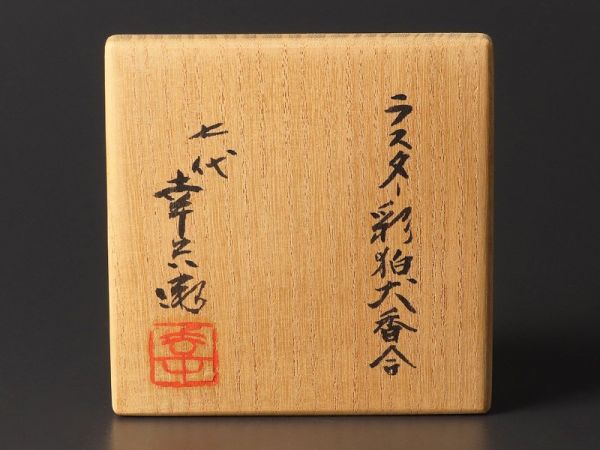 ラスター彩狛犬香合
七代
幸兵衛
幸